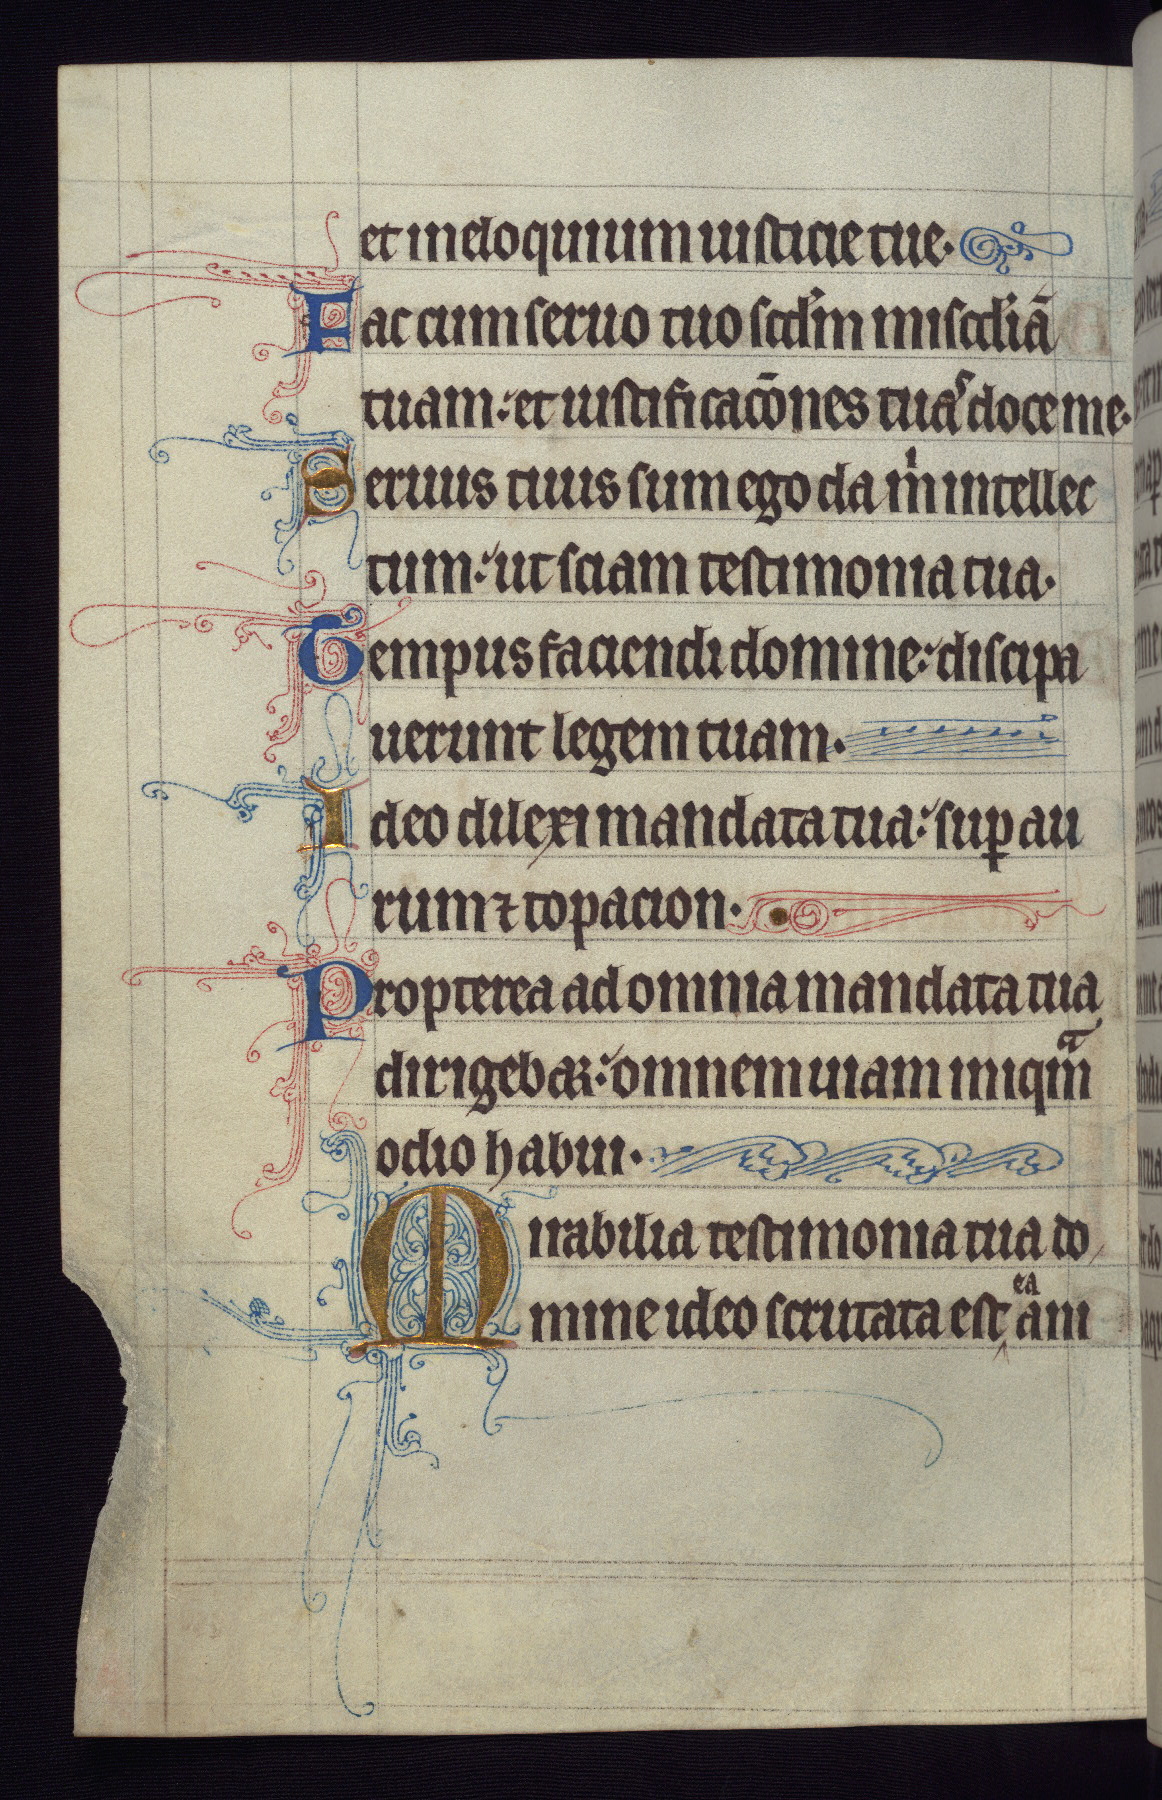 et in eloquium iusticie tue.
Fac cum seruo tuo scd'm misc'diā
tuam: et iustificacōnes tuas doce me.
Seruus tuus sum ego da m' intellec
tum: ut sciam testimonia tua.
Tempus faciendi domine: discipa
uerunt legem tuam.
Ideo dilexi mandata tua: sup̱ au
rum ⁊ topacion.
Propterea ad omnia mandata tua
dirigebar: omnem uiam iniqᵃm
odio habui.
Mirabilia testimonia tua do
mine ideo scrutata est ea ani